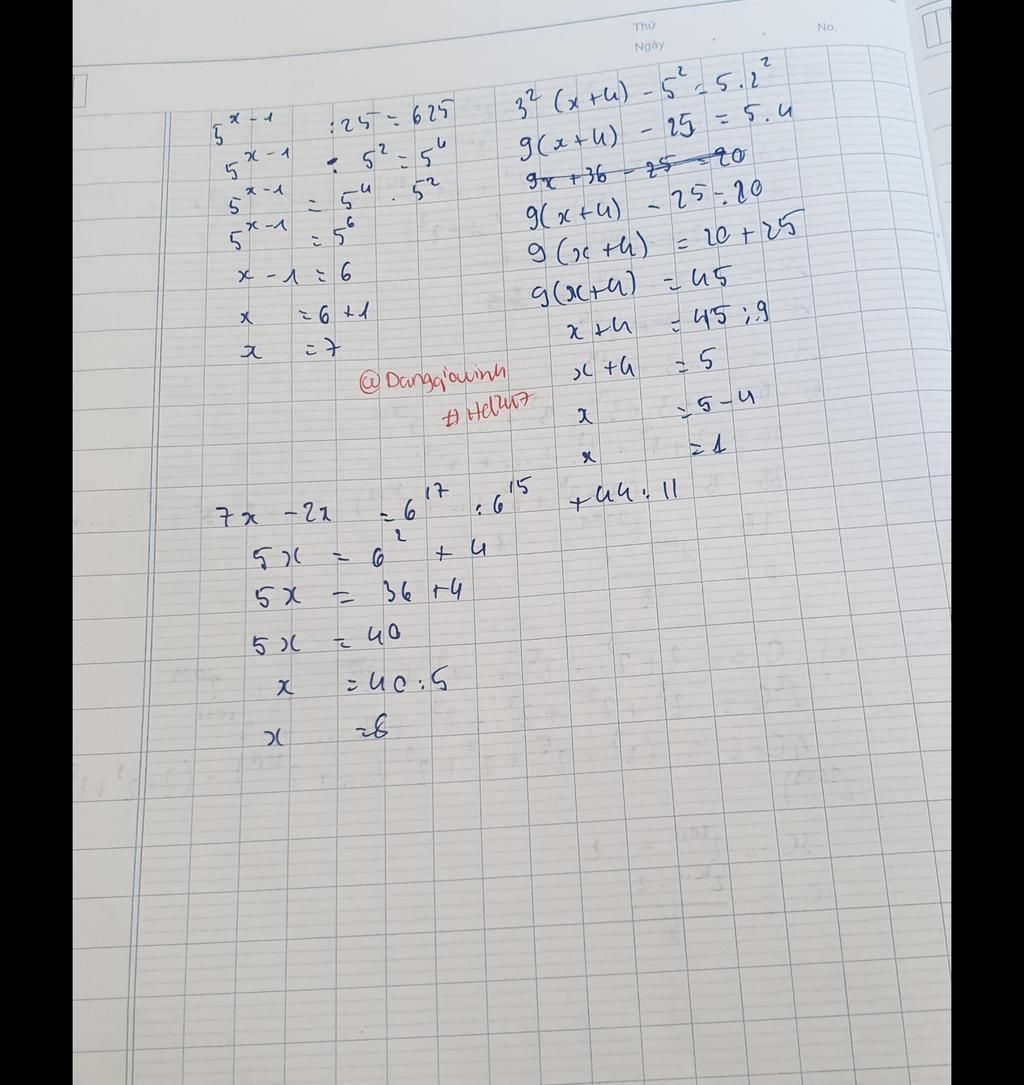 Thứ
Ngày
No.
5^(x-1) : 25 = 625
5^(x-1) : 5^2 = 5^4
5^(x-1) = 5^4 . 5^2
5^(x-1) = 5^6
x - 1 = 6
x = 6 + 1
x = 7
3^2 (x+4) - 5^2 = 5.2^2
9(x+4) - 25 = 5.4
9x + 36 - 25 = 20
9(x+4) - 25 = 20
9(x+4) = 20 + 25
9(x+4) = 45
x+4 = 45 : 9
x+4 = 5
x = 5 - 4
x = 1
7x - 2x = 6^17 : 6^15 + 44 : 11
5x = 6^2 + 4
5x = 36 + 4
5x = 40
x = 40 : 5
x = 8